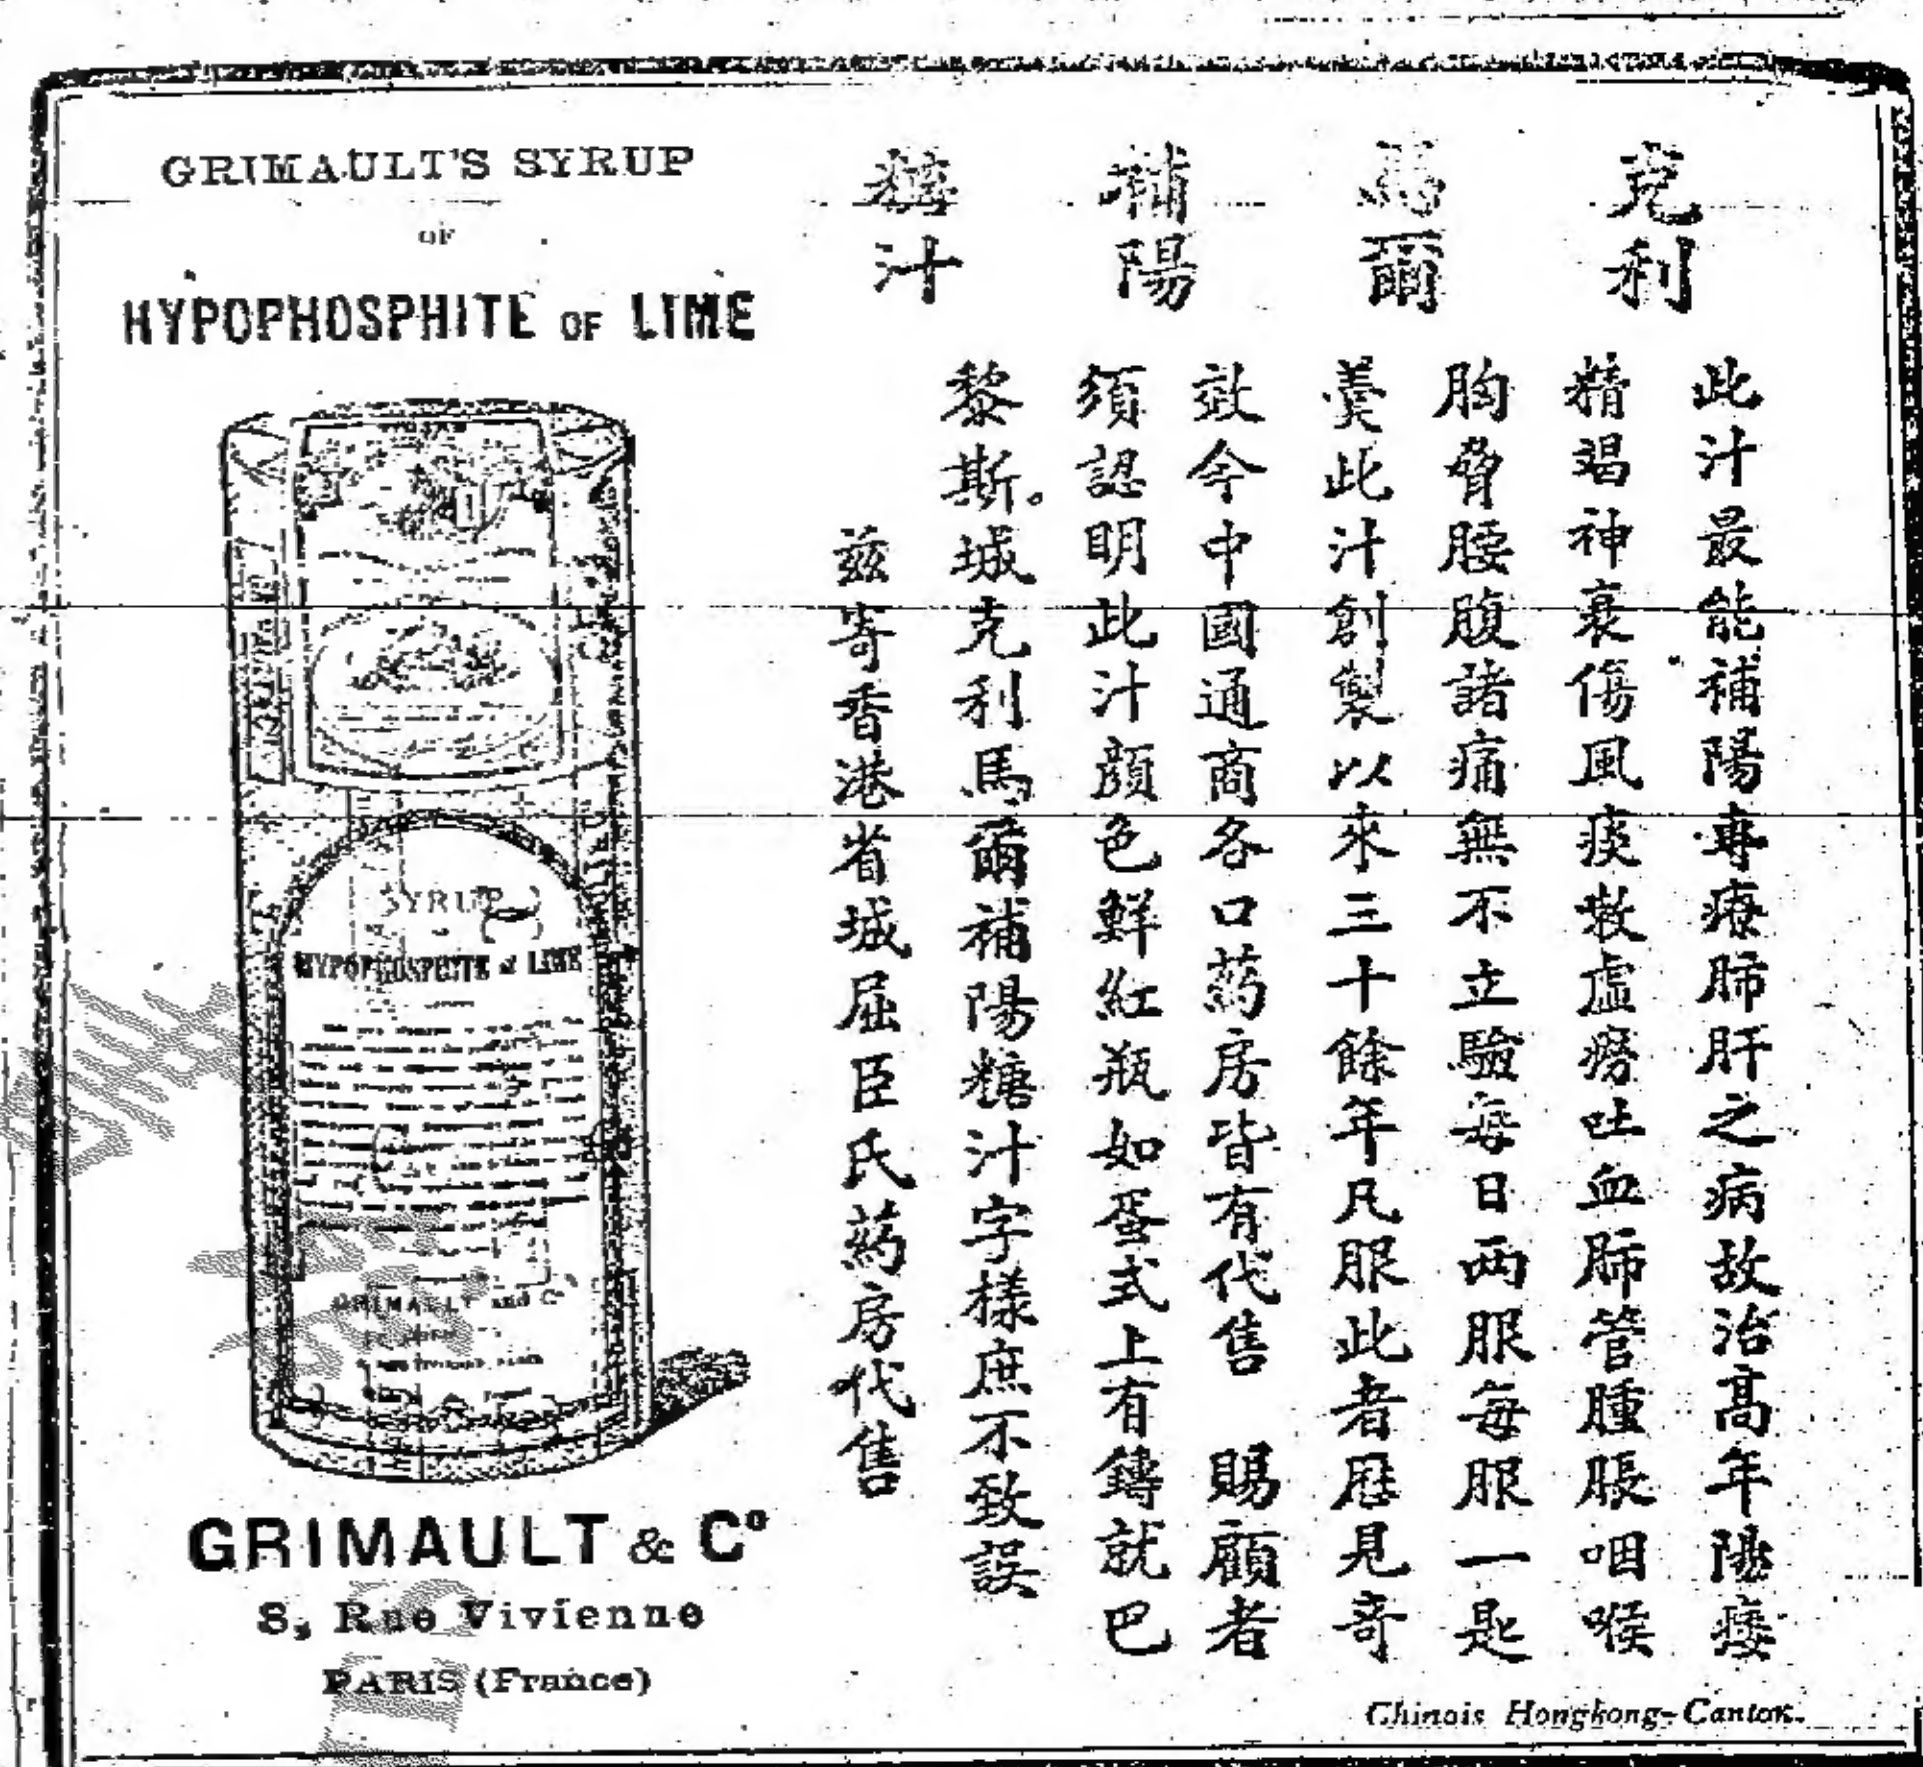 GRIMAULT'S SYRUP
OF
HYPOPHOSPHITE OF LIME
SYRUP
HYPOPHOSPHITE of LIME
GRIMAULT AND Cº
GRIMAULT & Cº
8, Rue Vivienne
PARIS (France)
克利
馬爾
補陽
糖汁
此汁最能補陽專療肺肝之病故治高年陽痿
精竭神衰傷風痰欬虛癆吐血肺管腫脹咽喉
胸脅腰腹諸痛無不立驗每日兩服每服一匙
羹此汁創製以來三十餘年凡服此者歷見奇
效今中國通商各口葯房皆有代售 賜顧者
須認明此汁顏色鮮紅瓶如蛋式上有鑄就巴
黎斯城克利馬爾補陽糖汁字樣庶不致誤
茲寄香港省城屈臣氏葯房代售
Chinois Hongkong-Canton.